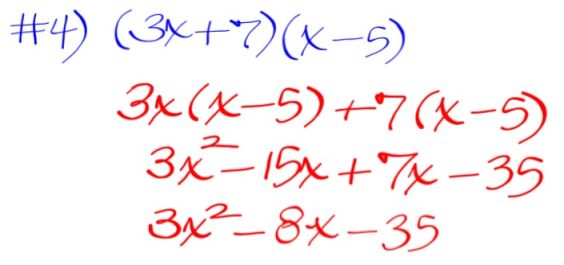 #4) (3x+7)(x-5)
3x(x-5)+7(x-5)
3x²-15x+7x-35
3x²-8x-35